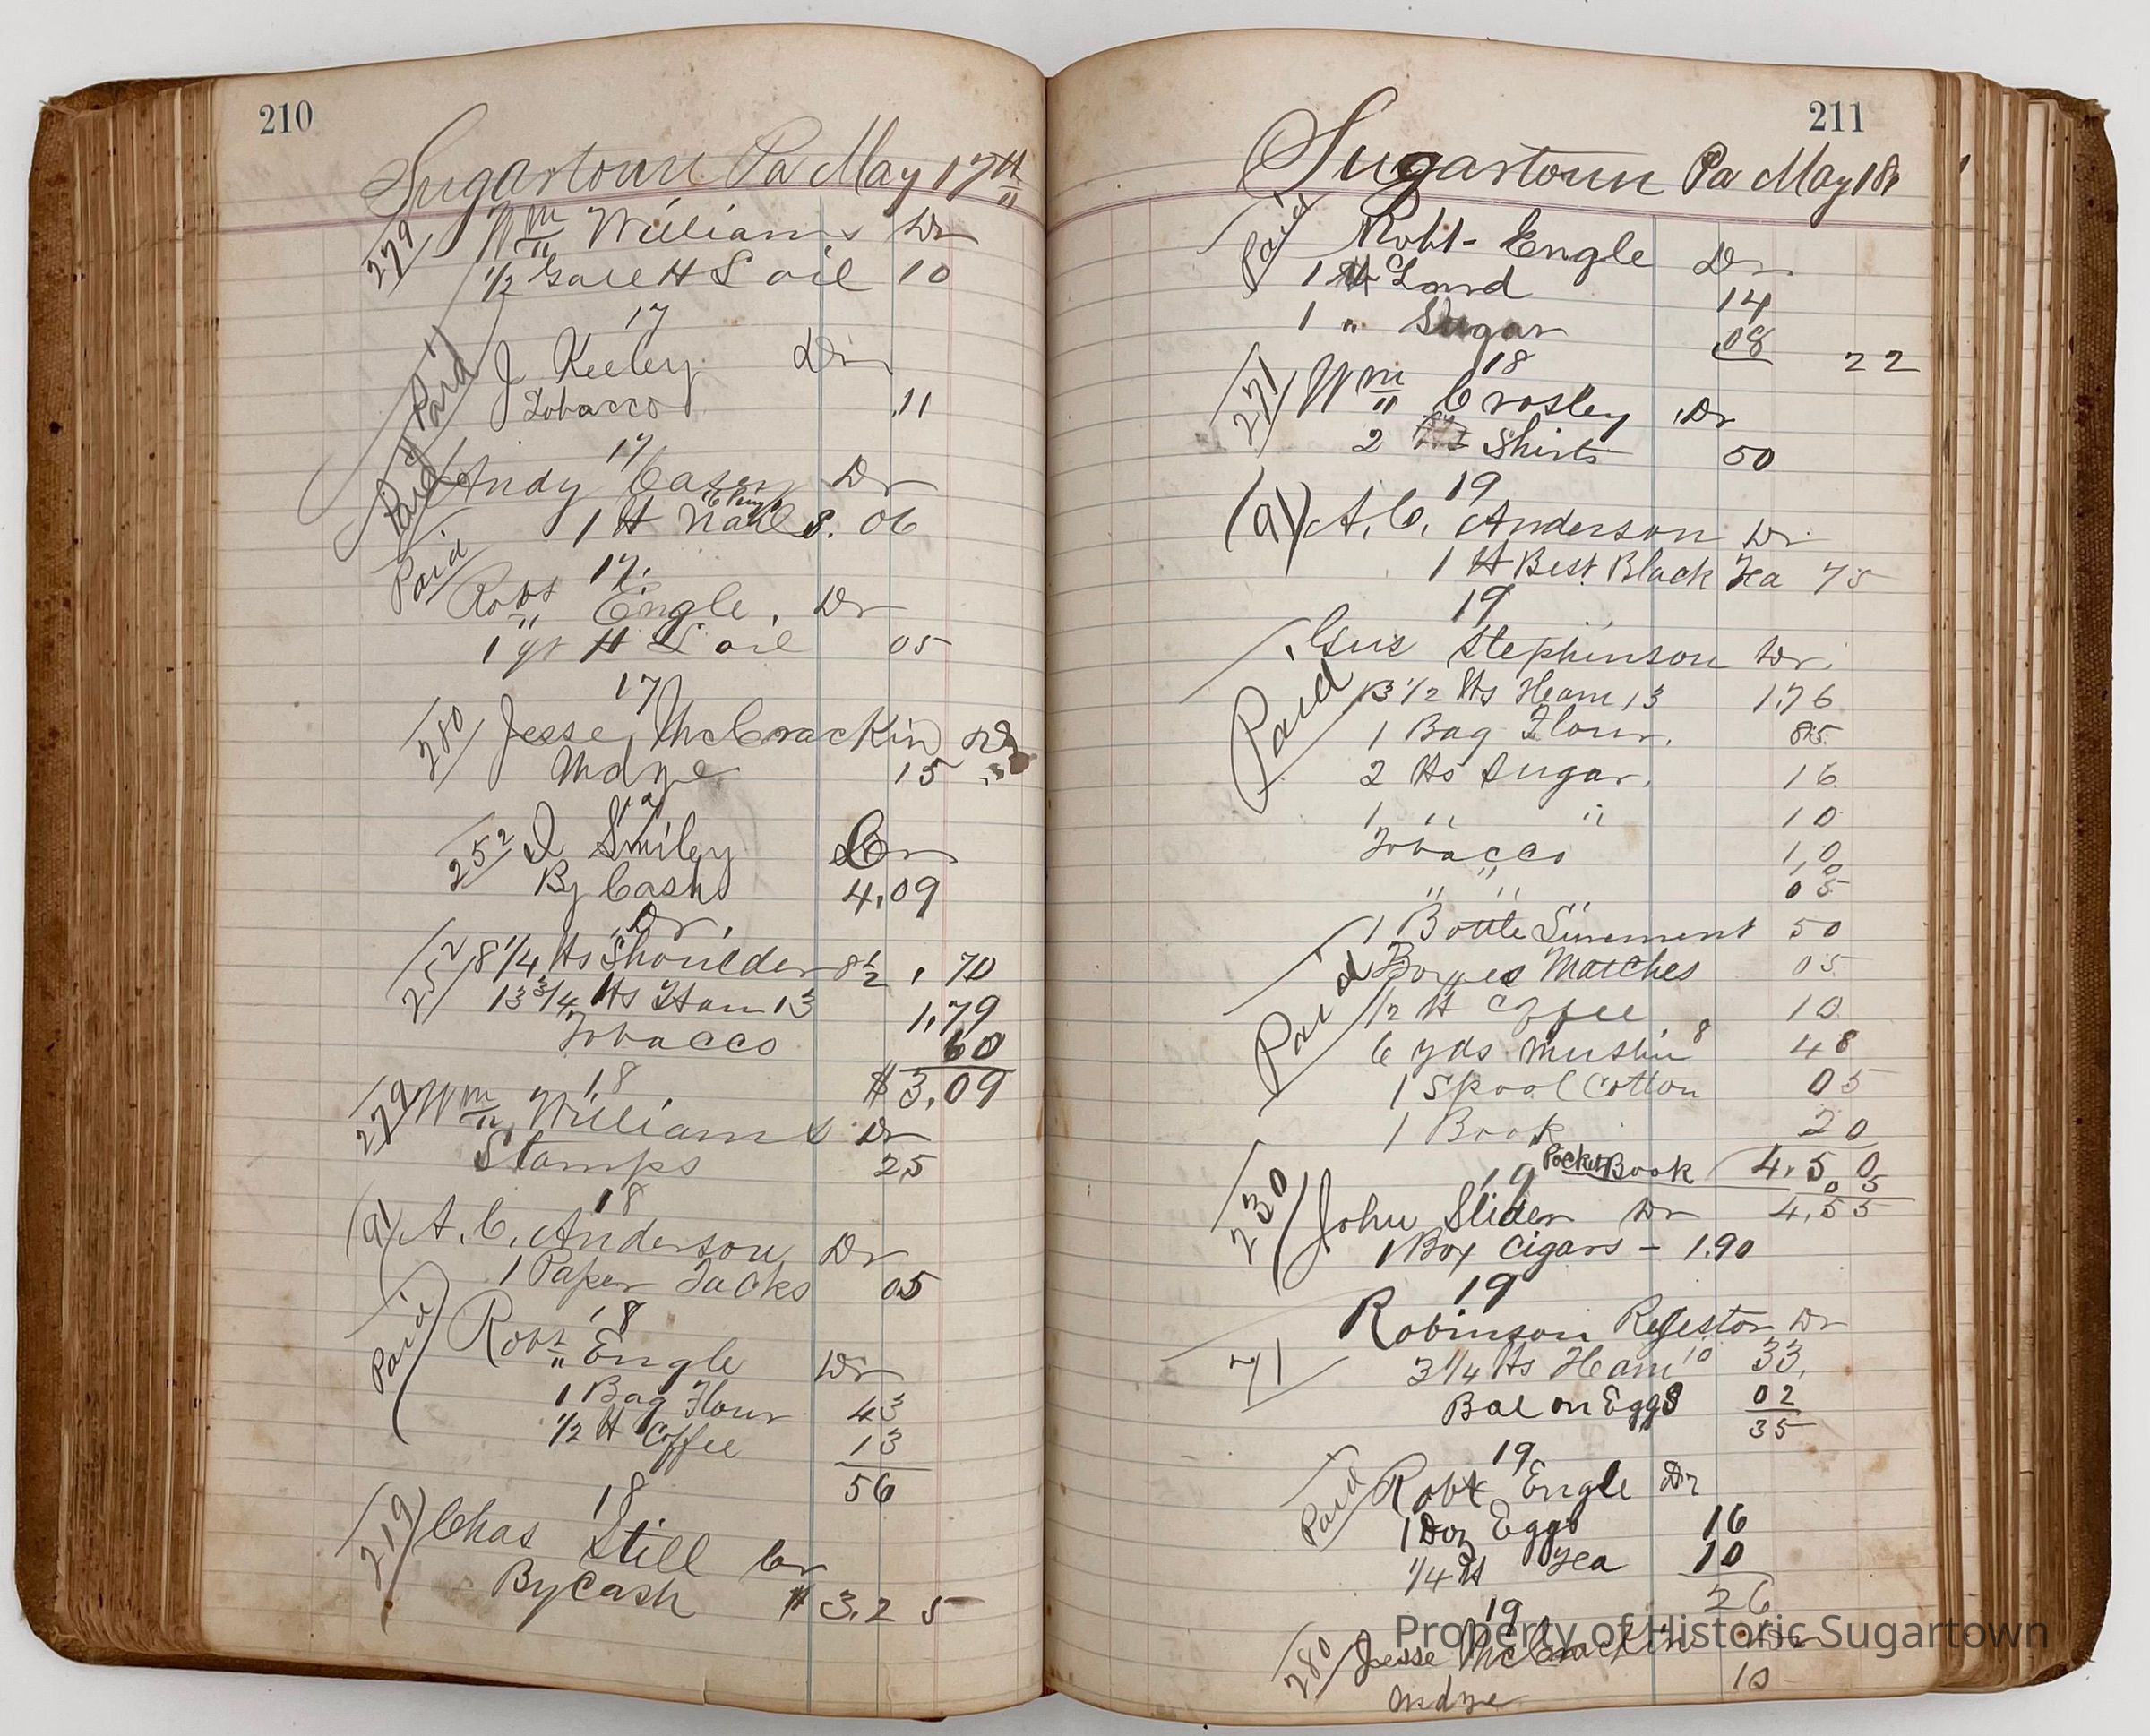 210
Sugartown Pa May 17th
279 Wm Williams Dr
1/2 Gall H L oil 10
17
J Keeley Dr
Paid Tobacco .11
17
Paid Andy Casey Dr
1 lb Nails. 06
17.
Paid Robt Engle. Dr
1 qt H L oil 05
17
280 Jesse McCrackin Dr
Mdze 15
17
252 I Smiley Cr
By Cash 4,09
Dr.
252 8 1/4 lbs Shoulder 8 1/2 . 70
13 3/4 lbs Ham 13 1,79
Tobacco 60
$3,09
18
279 Wm Williams Dr
Stamps 25
18
(91) A. C. Anderson Dr
1 Paper Tacks 05
18
Paid Robt Engle Dr
1 Bag Flour 43
1/2 lb Coffee 13
56
18
219 Chas Still Cr
By Cash $3.25
211
Sugartown Pa May 18th
Paid Robt - Engle Dr
1 lb Lard 14
1 " Sugar 08 22
18
271 Wm Crosley Dr
2 Shirts 50
19
(91) A. C. Anderson Dr
1 lb Best Black Tea 75
19
Gus Stephinson Dr.
Paid 13 1/2 lbs Ham 13 1.76
1 Bag Flour. 85
2 lbs Sugar. 16
1 " " 10
Tobacco 1,0
" " 05
1 Bottle Linement 50
Paid Boxes Matches 05
1/2 lb Coffee 10
6 yds Muslin 8 48
1 Spool Cotton 05
1 Book 20
Pocket Book 4.50
05
19
230 John Slider Dr 4,55
1 Box Cigars - 1.90
19
Robinson Regester Dr
71 3 1/4 lbs Ham 10 33,
Bal on Eggs 02
35
19
Paid Robt Engle Dr
1 Doz Eggs 16
1/4 lb Tea 10
26
19
280 Jesse McCrackin Dr
Mdze 10
Property of Historic Sugartown